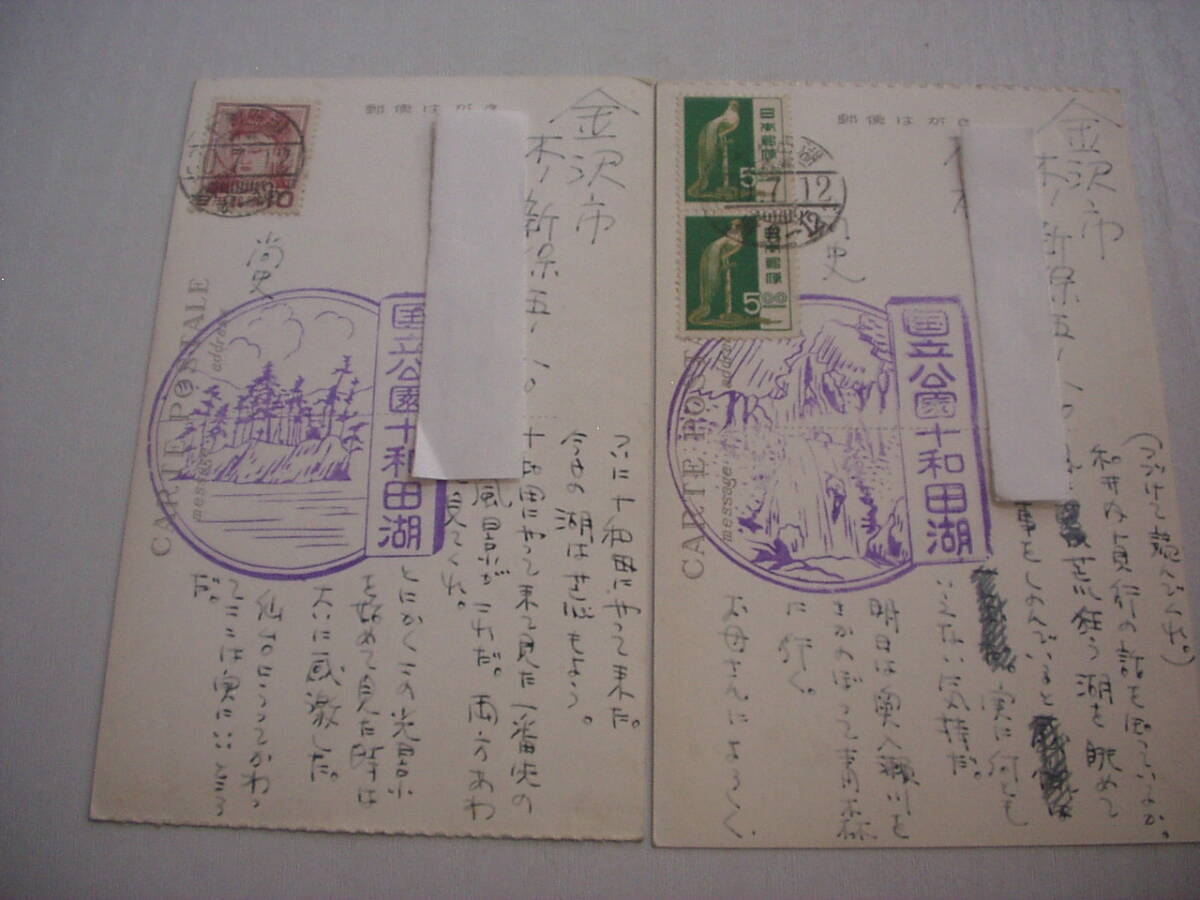 郵便はがき
金沢市
木ノ新保五ノ一〇
尚史
国立公園十和田湖
CARTE POSTALE
message
address
7 12
10
つひに十和田にやって来た。
今日の湖は
十和田にやって来て見た一番先の
風景がこれだ。両方あわ
見てくれ。
とにかくこの光景に
を始めて見た時は
大いに感激した。
仙台にうってかわっ
てここは実にいいところ
だ。
郵便はがき
金沢市
木ノ新保五ノ一〇
史
日本郵便
5
日本郵便
5.00
7 12
国立公園十和田湖
CARTE POST
message
(つづけて読んでくれ。)
行の話を思っている
狂う湖を眺めて
事をしのんでいると
実に何とも
いえない気持だ。
明日は奥入瀬川を
さかのぼって青森
に行く。
お母さんによろしく